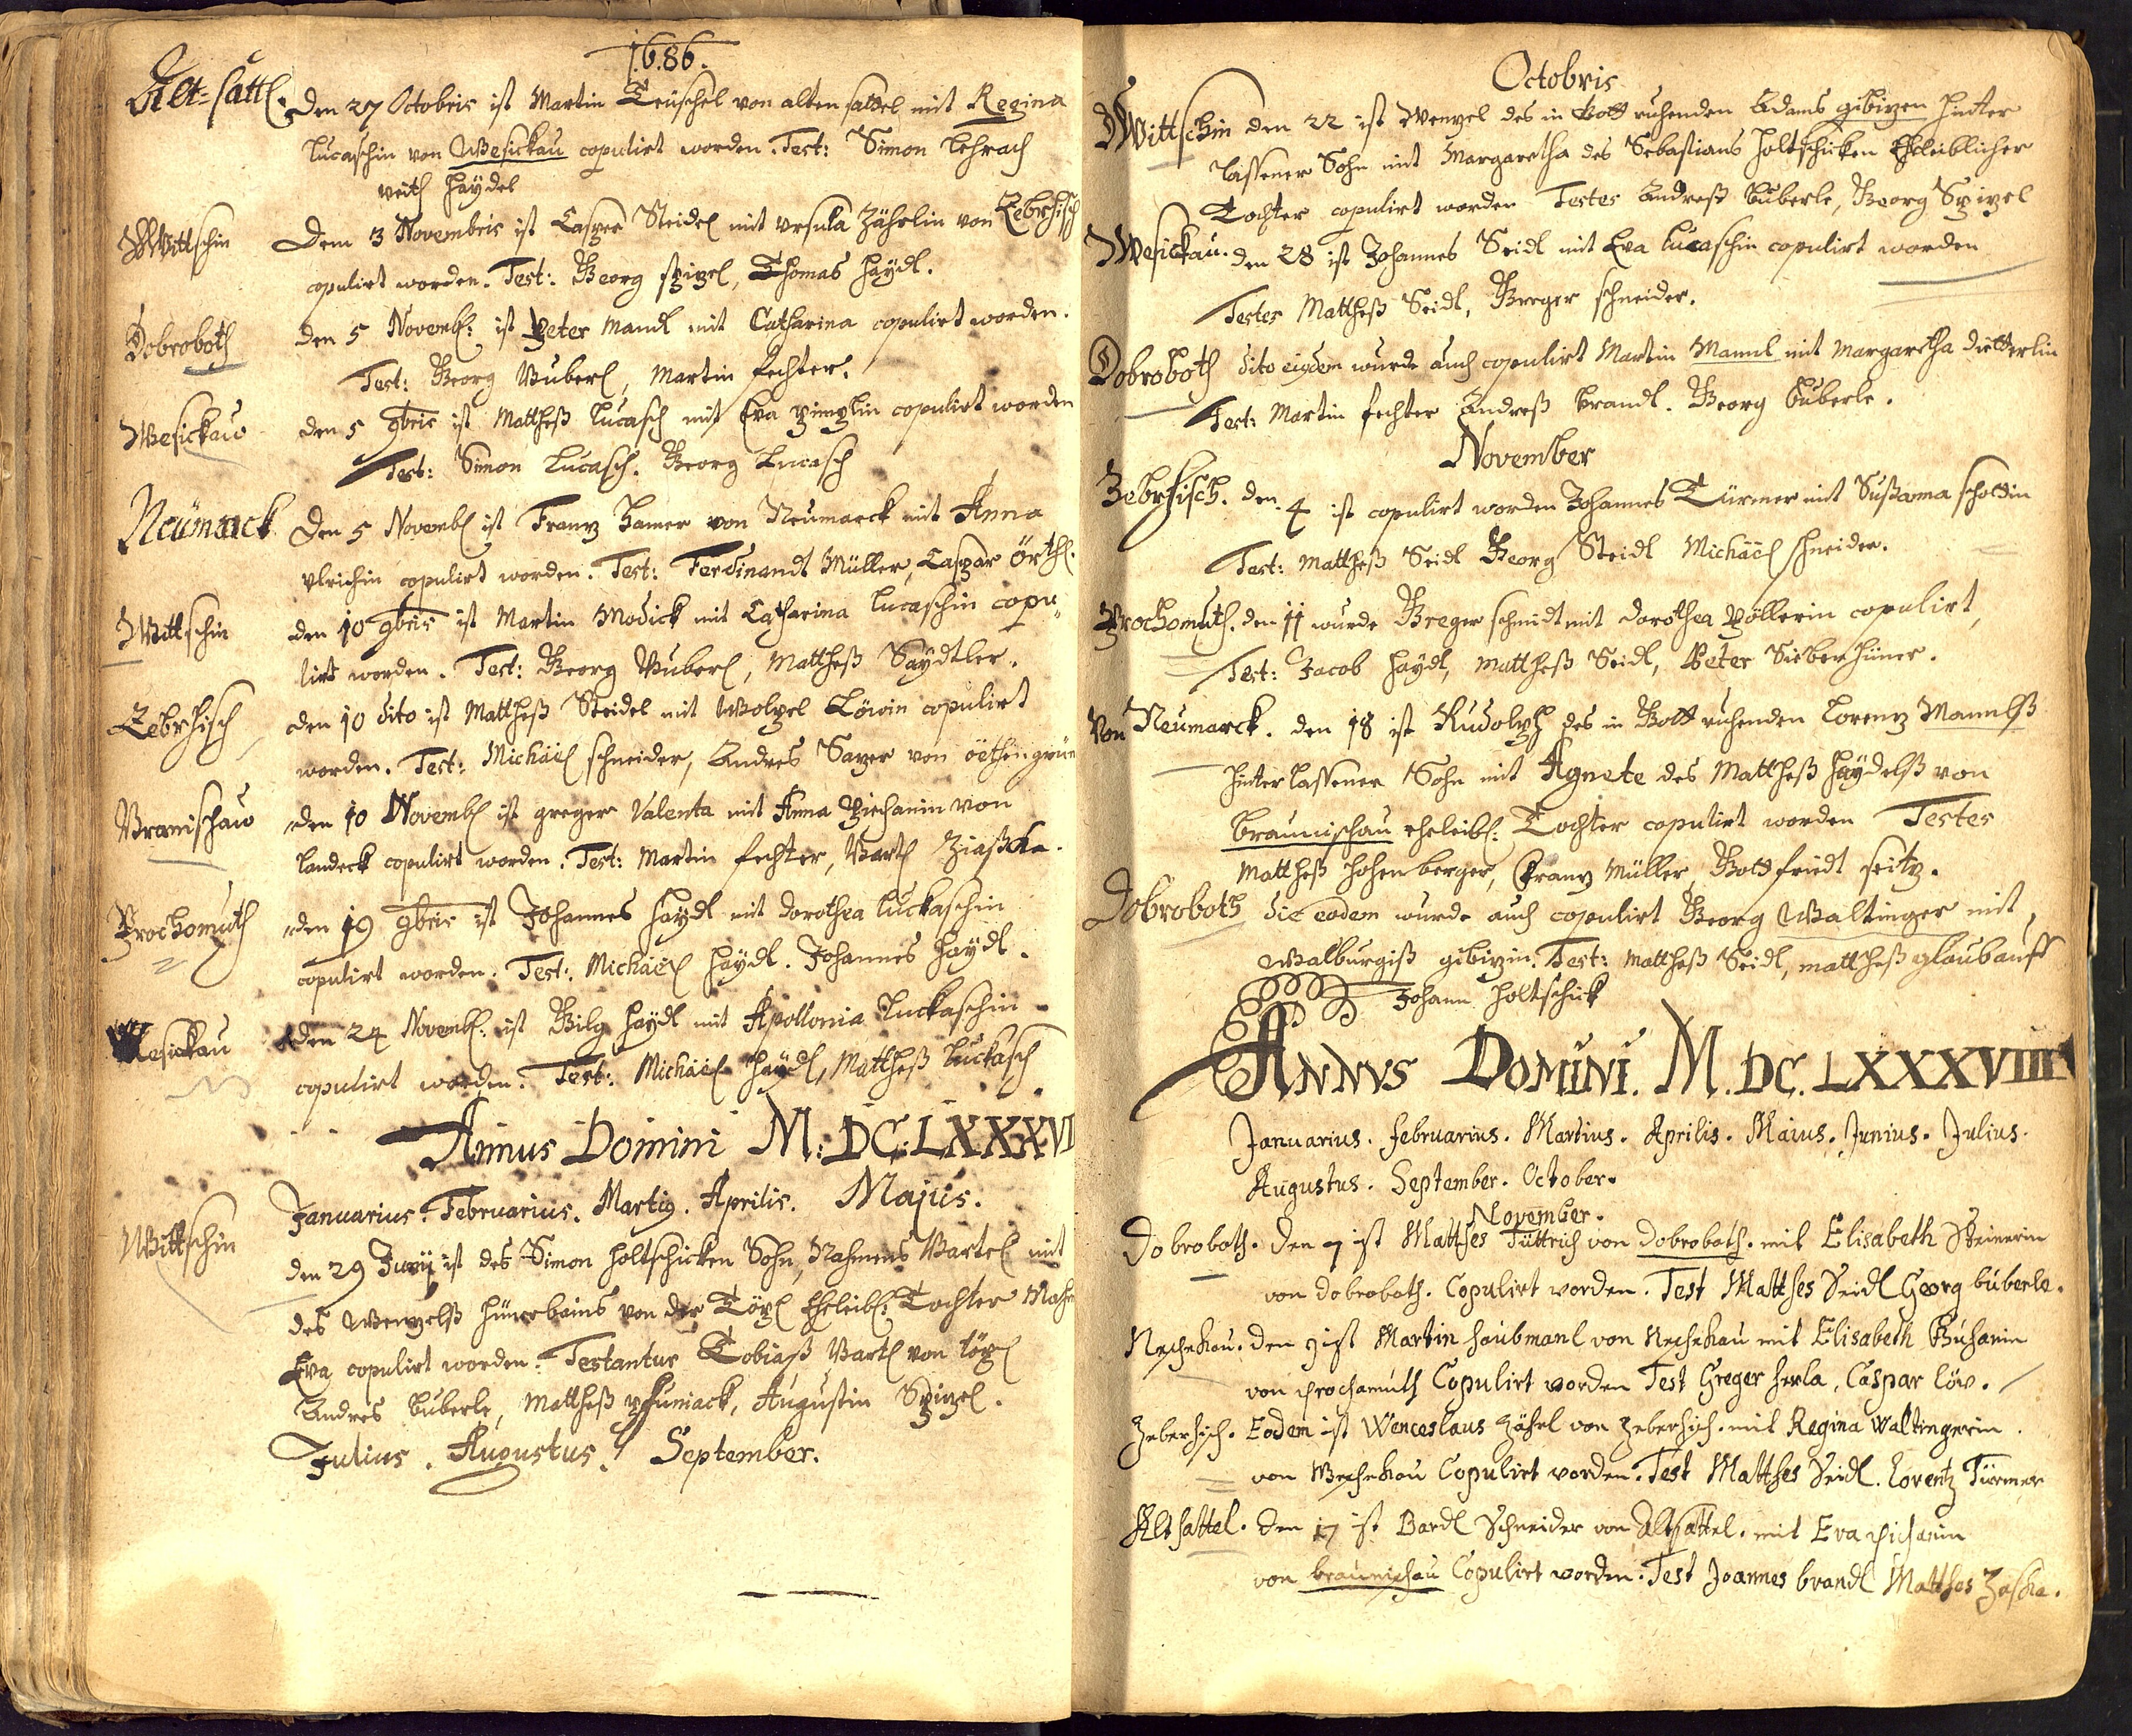 1686.
Alt=sattl. Den 27 Octobris ist Martin Teuschel von alten sattel mit Regina
Lucaschin von Wesickau copulirt worden. Test: Simon Lehrach
veith Haÿdel
Wittschin Dem 3 Novembris ist Casper Steidel mit Ursula Zährlin von Zebrhisch
copulirt worden. Test: Georg spizel, Thomas Haÿdl.
Dobroboth den 5 Novemb: ist Peter Mandl mit Catharina copulirt worden.
Test: Georg Buberl, Martin fechter.
Wesickau den 5 9bris ist Matthеß Lucasch mit Eva copulirt worden
Test: Simon Lucasch. Georg Lucasch
Neümarck Den 5 Novemb ist Frantz Hamer von Neumarck mit Anna
Ulrichin copulirt worden. Test: Ferdinandt Müller, Caspar Örthl.
Wittschin den 10 9bris ist Martin Modick mit Catharina Lucaschin copu,
lirt worden. Test: Georg Buberl, Mattheß Saÿdtler.
Zebrhisch den 10 dito ist Mattheß Steidel mit Löwin copulirt
worden. Test: Michäel schneider, Andres von
Branischau den 10 Novemb ist greger Valenta mit Anna von
Landeck copulirt worden. Test: Martin fechter, Bartl Ziaschka.
Prochomuth den 19 9bris ist Johannes Haÿdl mit Dorothea Luckaschin
copulirt worden. Test: Michäel Haÿdl. Johannes Haÿdl.
Wesickau den 24 Novemb: ist Gilg Haÿdl mit Apollonia Luckaschin
copulirt worden. Test: Michäel Haÿdl, Mattheß Luckasch
Annus Domini M:DC:LXXXVI
Januarius. Februarius. Martig. Aprilis. Majus.
Wittschin den 29 Junij ist des Simon Holtschicken Sohn, Nahmens Bartel mit
des Wentzelß Hünerbains von der Töpl Eheleibl: Tochter Nahm
Eva copulirt worden. Testantur Tobiaß Bartl von töpl
Andres Buberle, Mattheß, Augustin Spizel.
Julius. Augustus. September.
Octobris
Wittschin den 22 ist Wenzel des in Gott ruhenden Adams gibizen hinter
lassener Sohn mit Margaretha des Sebastians Holtschicken Eheleiblicher
Tochter copulirt worden Testes Andreß Buberle, Georg Spizel
Wesickau. den 28 ist Johannes Seidl mit Eva Lucaschin copulirt worden
Testes Mattheß Seidl, Greger schneider.
Dobroboth dito eigdem wurde auch copulirt Martin Mannl mit Margaretha Dietterlin
Test: Martin fechter Andreß brandl. Georg Buberle.
November
Zebrhisch. den 4 ist copulirt worden Johannes Türmer mit Susanna scholdin
Test: Mattheß Seidl Georg Steidl Michäel schneider.
Prochomuth. den 11 wurde Greger schmidt mit Dorothea Pöllerin copulirt,
Test: Jacob Haÿdl, Mattheß Seidl, Peter Sieberhüner.
Von Neumarck. den 18 ist Rudolph des in Gott ruhenden Lorentz Mannlß
hinterlassener Sohn mit Agnete des Mattheß Haÿdelß von
braunischau eheleibl: Tochter copulirt worden Testes
Mattheß Hohenberger, Frantz Müller Gottfriedt seitz.
Dobroboth die eodem wurde auch copulirt Georg Waltinger mit
Walburgiß gibizin. Test: Mattheß Seidl, mattheß glaubauff
Johann Holtschick
ANNVS DOMINI. M.DC.LXXXVIII
Januarius. februarius. Martius. Aprilis. Maius. Junius. Julius.
Augustus. September. October.
November.
Dobroboth. Den 7 ist Matthes Tüttrich von dobroboth. mit Elisabeth Steinerin
von dobroboth. Copulirt worden. Test Matthes Seidl Georg büberle.
Neschekau. Den 9 ist Martin haubmanl von Neschekau mit Elisabeth Buhanin
von Prochamuth Copulirt worden Test Greger herla, Caspar löw.
Zeberhisch. Eodem ist Wenceslaus zährl von zeberhisch. mit Regina Waltingerin.
von Weschekau Copulirt worden. Test Matthes Seidl. Lorentz Türmer
Alt sattel. Den 17 ist Bardl Schneider von Altsattel. mit Eva Pichanin
von braunischau Copulirt worden. Test Joannes brandl Matthes Zascka.